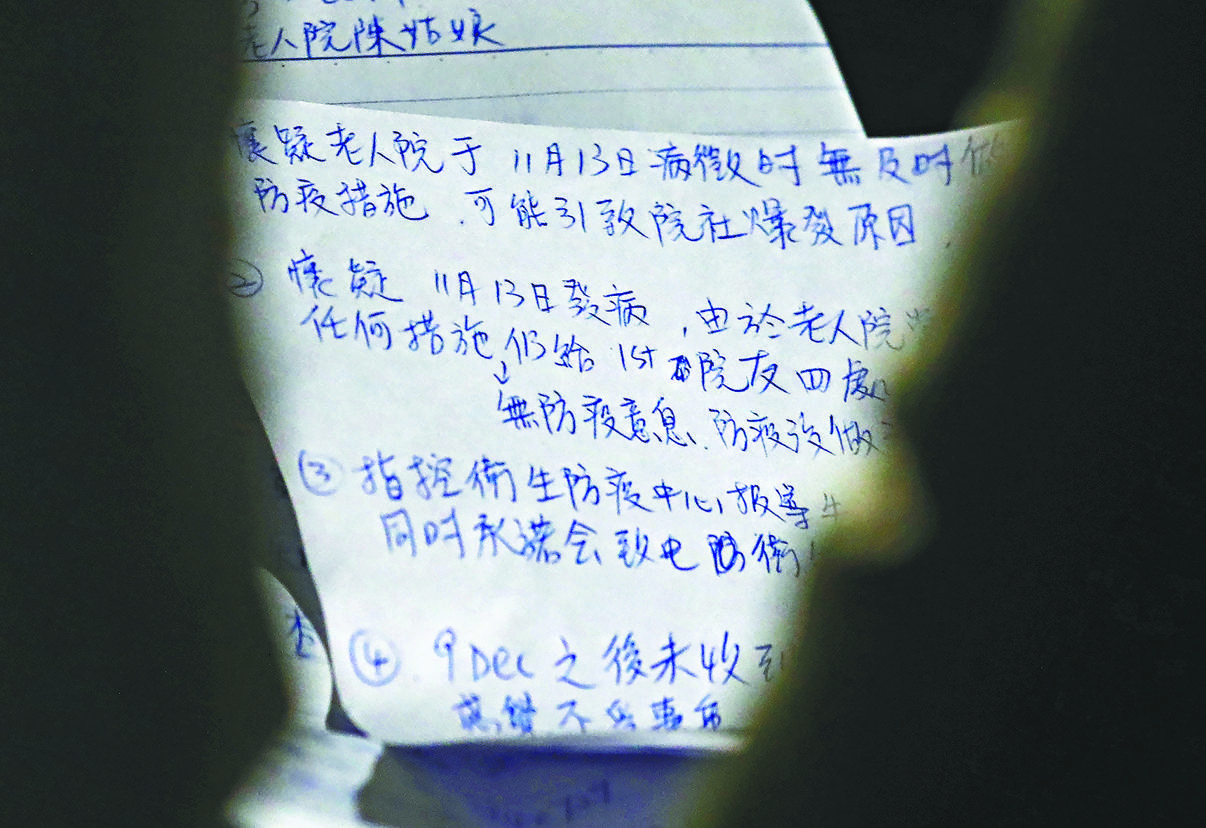 老人院陳姑娘
懷疑老人院于 11月13日病徵时無及时做
防疫措施,可能引致院社爆發原因.
② 懷疑 11月13日發病,由於老人院
任何措施,仍給 1st 院友四處
無防疫意息.防疫沒做
③ 指控衛生防疫中心报导
同时承諾会致电 衛
④. 9 Dec 之後未收到